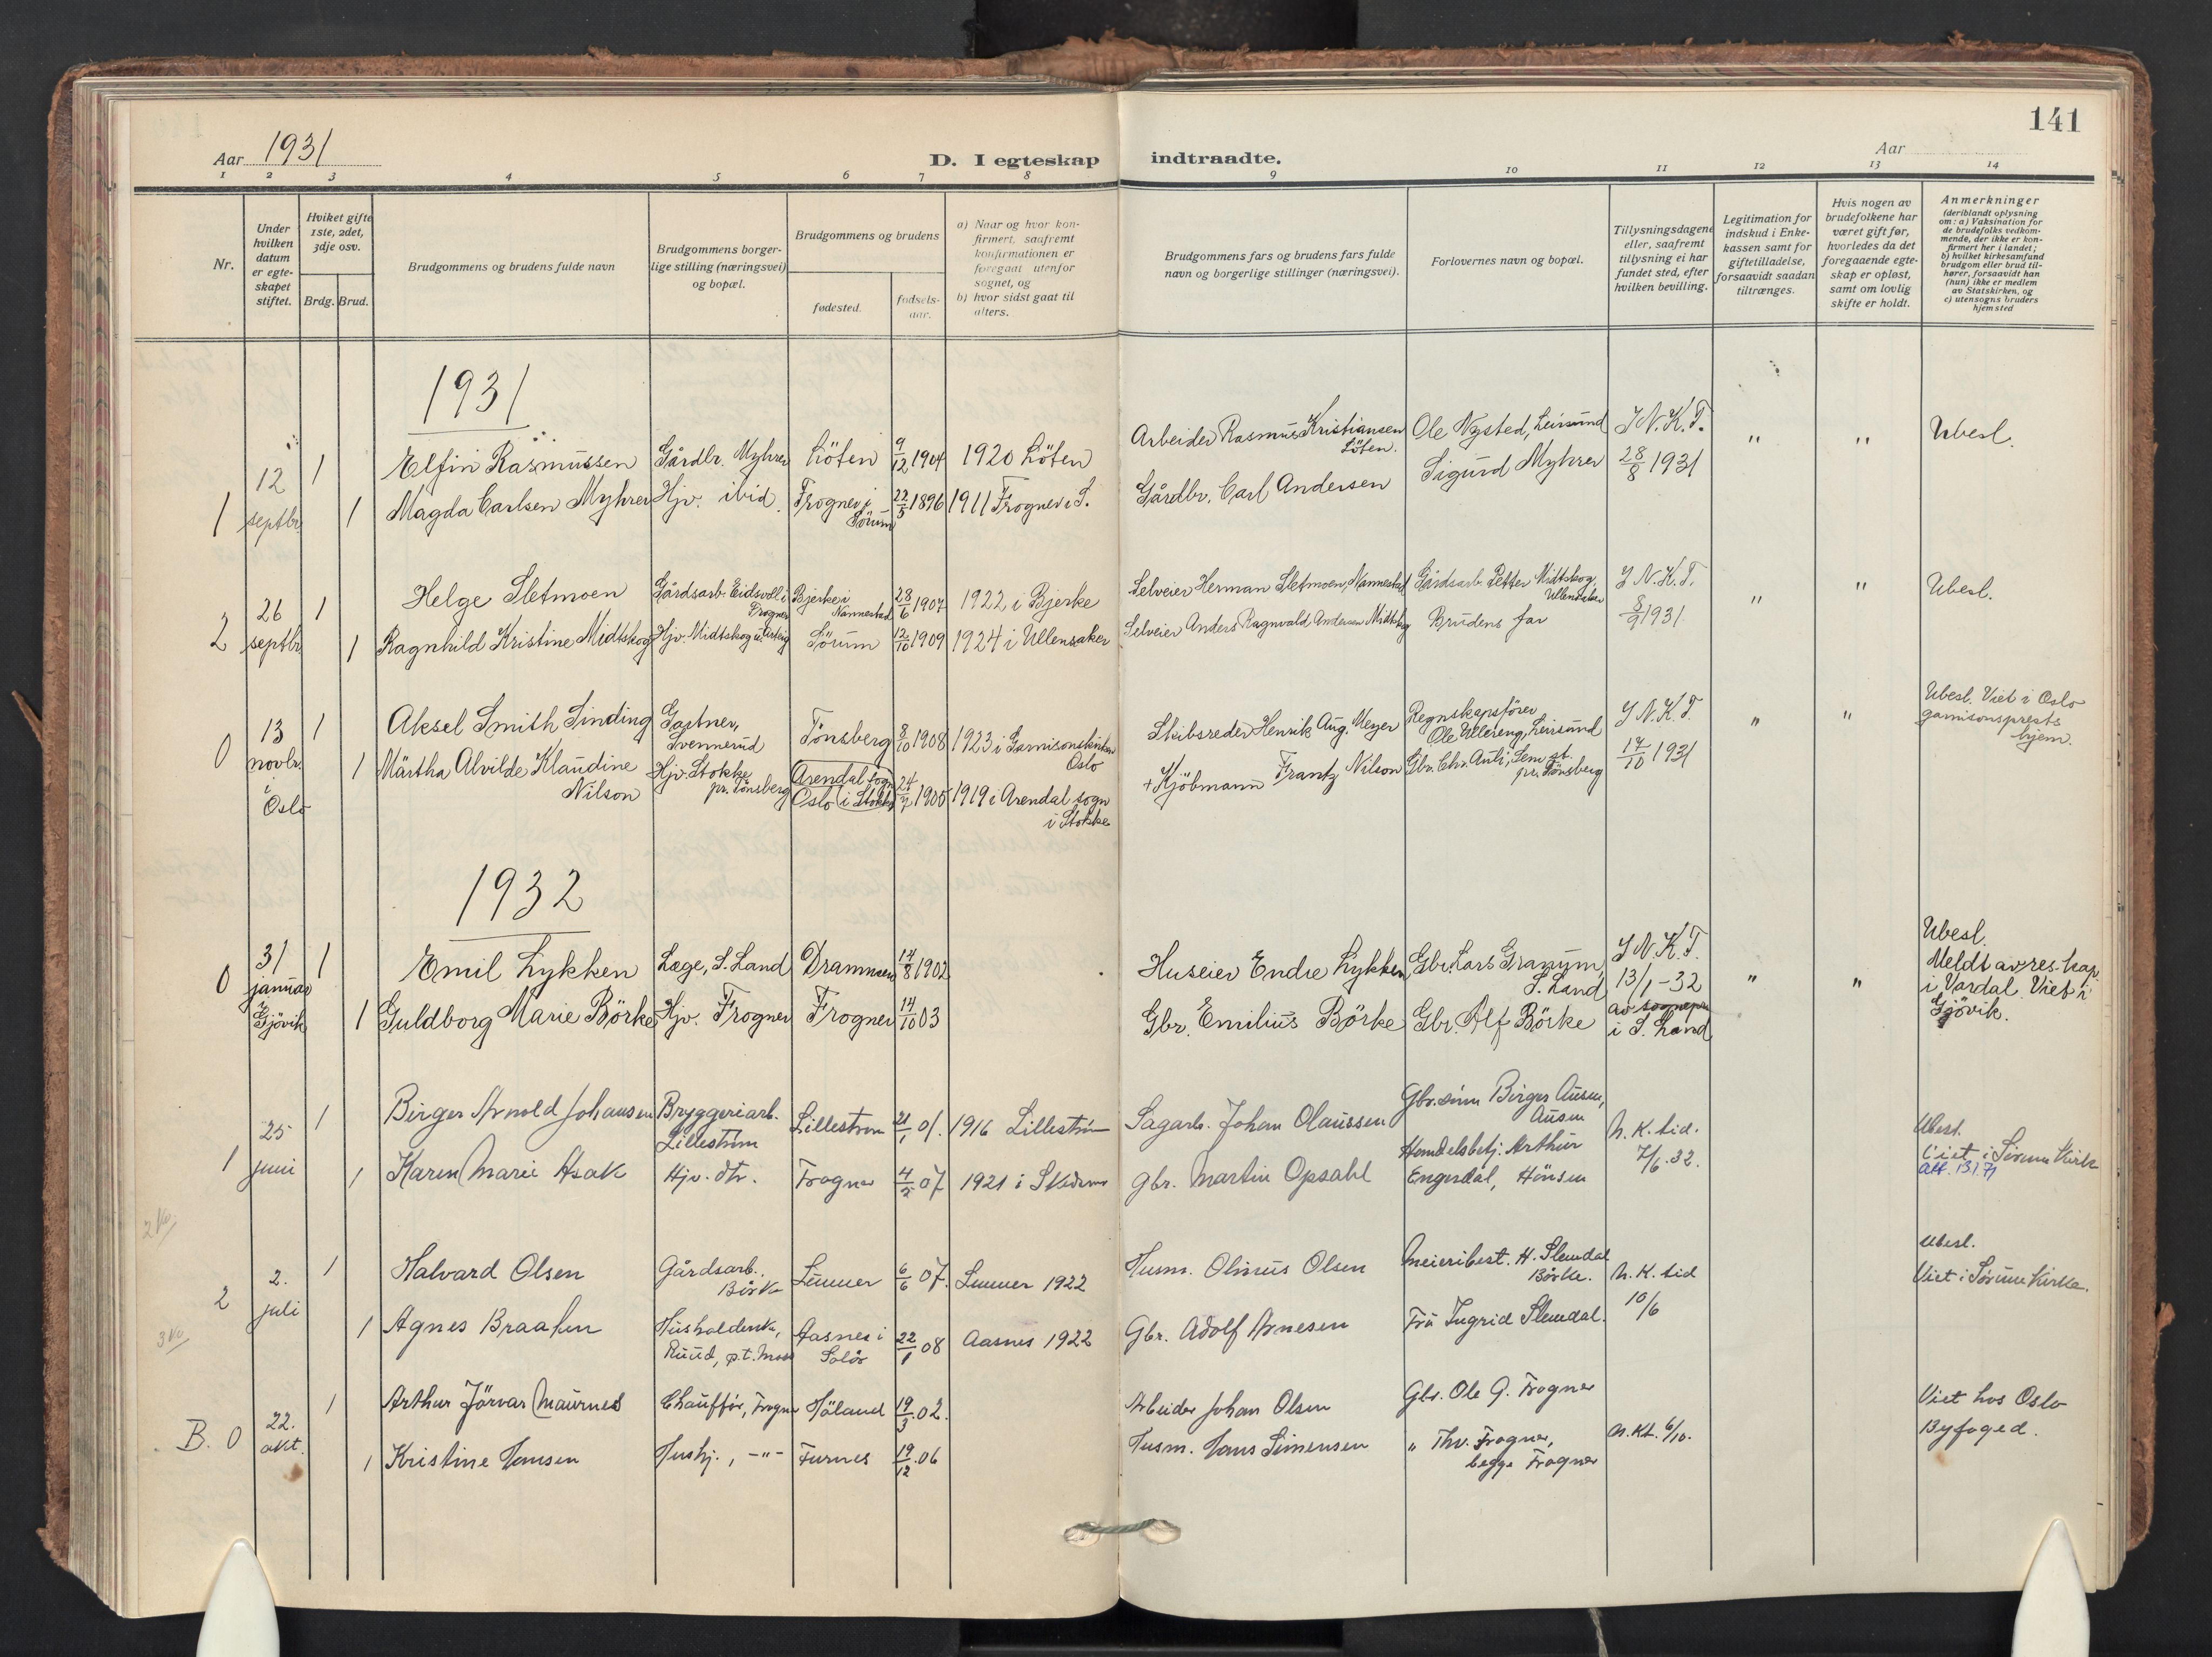 141
Aar 1931
D. I egteskap indtraadte.
Aar
1 2 3 4 5 6 7 8 9 10 11 12 13 14
Nr.
Under hvilken datum er egteskapet stiftet.
Hviket gifte 1ste, 2det, 3dje osv.
Brdg. Brud.
Brudgommens og brudens fulde navn
Brudgommens borgerlige stilling (næringsvei) og bopæl.
Brudgommens og brudens
fødested.
fødsels-aar.
a) Naar og hvor konfirmert, saafremt konfirmationen er foregaat utenfor sognet, og
b) hvor sidst gaat til alters.
Brudgommens fars og brudens fars fulde navn og borgerlige stillinger (næringsvei).
Forlovernes navn og bopæl.
Tillysningsdagene eller, saafremt tillysning ei har fundet sted, efter hvilken bevilling.
Legitimation for indskud i Enkekassen samt for giftetilladelse, forsaavidt saadan tiltrænges.
Hvis nogen av brudefolkene har været gift før, hvorledes da det foregaaende egteskap er opløst, samt om lovlig skifte er holdt.
Anmerkninger (deriblandt oplysning om: a) Vaksination for de brudefolks vedkommende, der ikke er konfirmert her i landet; b) hvilket kirkesamfund brudgom eller brud tilhører, forsaavidt han (hun) ikke er medlem av Statskirken, og c) utensogns bruders hjemsted
1931
1 12 septbr. 1 Elfin Rasmussen Gårdbr. Myhrer Löten 9/12 1904 1920 Löten Arbeider Rasmus Kristiansen Löten. Ole Nysted, Leirsund J N. K. T. 28/8 1931 " " Ubesl.
1 Magda Carlsen Myhrer Hjv. ibid. Frogner i Sörum 22/5 1896 1911 Frogner i S. Gårdbr. Carl Andersen Sigurd Myhrer
2 26 septbr. 1 Helge Sletmoen Gårdsarb. Eidsvoll i Frogner Bjerke i Nannestad 28/6 1907 1922 i Bjerke Selveier Herman Sletmoen, Nannestad Gårdsarb. Petter Midtskog, Ullensaker J N. K. T. 8/9 1931 " " Ubesl.
1 Ragnhild Kristine Midtskog Hjv. Midtskog Sörum 12/10 1909 1924 i Ullensaker Selveier Anders Ragnvald Andersen Midtskog Brudens far
0 13 novbr. i Oslo 1 Aksel Smith Sinding Gartner, Svennerud Tönsberg 8/10 1908 1923 i Garnisonskirken Oslo Skibsreder Henrik Aug. Meyer Regnskapsförer Ole Ullereng, Leirsund J N. K. T. 17/10 1931 " " Ubesl. Viet i Oslo garnisonsprests hjem.
1 Märtha Alvilde Klaudine Nilson Hjv. Stokke pr. Tönsberg Arendal sogn Oslo i Stokke 24/7 1905 1919 i Arendal sogn i Stokke + Kjöbmann Frantz Nilson Gbr. Chr. Auli, Sem st. pr. Tönsberg
1932
0 31 januar i Gjövik 1 Emil Lykken Læge, S. Land Drammen 14/8 1902 Huseier Endre Lykken Gbr. Lars Granum, S. Land J N. K. T. 13/1-32 av sognepr. i S. Land " " Ubesl. Meldt av res. kap. i Vardal. Viet i Gjövik.
1 Guldborg Marie Börke Hjv. Frogner Frogner 14/10 03 Gbr. Emilius Börke Gbr. Alf Börke
1 25 juni 1 Birger Arnold Johansen Bryggeriarb. Lilleström Lillestrøm 21/1 01. 1916 Lillestrøm Sagarb. Johan Olaussen Gbr.sønn Birger Ausen, Ausen N. K. tid. 7/6.32. Ubesl. Viet i Sørum Kirke Att. 13.1.71
1 Karen Marie Asak Hjv. dtr. Frogner 4/2 07 1921 i Skedsmo Gbr. Martin Opsahl Handelsbetj. Arthur Engerdal, Hönsen
2 Ko.
2 2. juli 1 Halvard Olsen Gårdsarb. Börke Lunner 6/6 07. Lunner 1922 Husm. Olinus Olsen Meieribest. H. Slemdal Börke. N. K. tid 10/6 Ubesl. Viet i Sørum Kirke.
3 Ko
1 Agnes Braaten Husholderske, Ruud, p.t. Moss Aasnes i Solør 22/1 08 Aasnes 1922 Gbr. Adolf Arnesen Fru Ingrid Slemdal.
B. 0 22. okt. 1 Arthur Jörvar Maurnes Chauffør, Frogner Höland 19/3 02. Arbeider Johan Olsen Gbr. Ole G. Frogner N. Kt. 6/10. Viet hos Oslo Byfoged.
1 Kristine Hansen Hushj., -"- Furnes 19/12.06 Husm. Hans Simensen " Thv. Frogner, begge Frogner